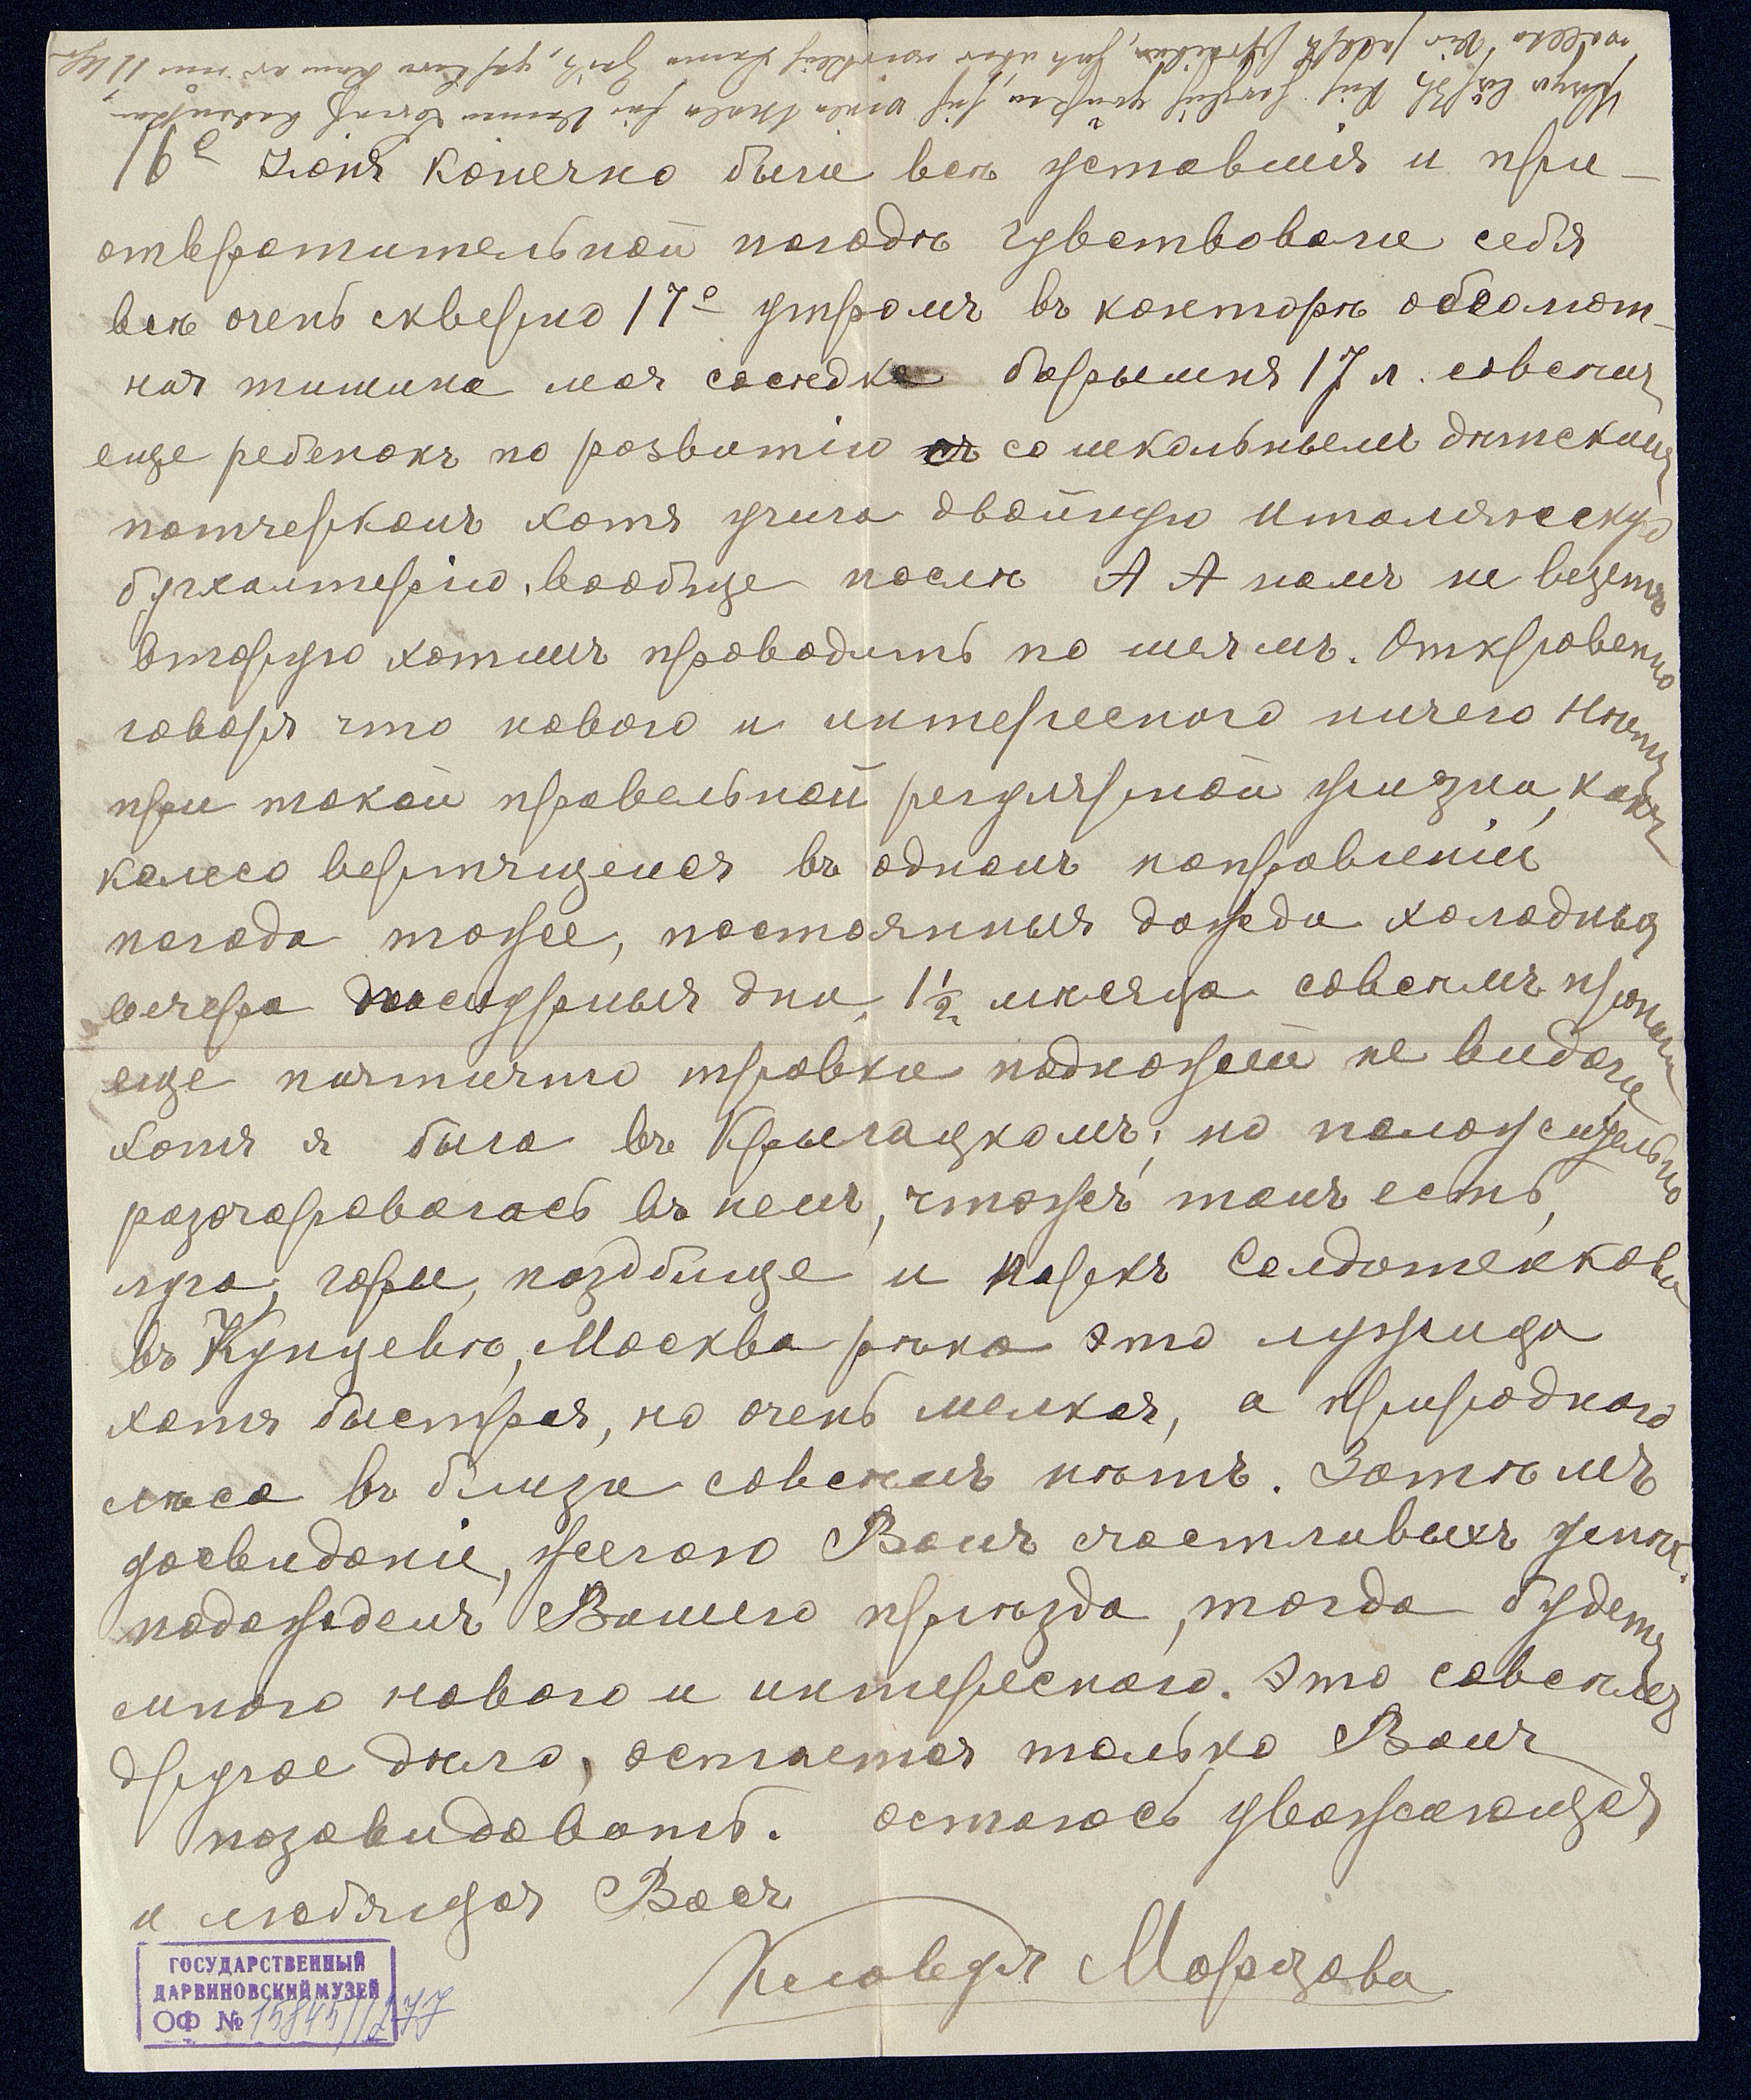 16е Іюня конечно были всѣ уставшія и при
отвратительной погодѣ чувствовали себя
всѣ очень скверно 17е утромъ въ конторѣ абсолют-
ная тишина моя соседка барышня 17 л. совсѣмъ
еще ребенокъ по развитію со школьнымъ дѣтскимъ
потчеркомъ хотя учила двойную Италіянскую
бухалтерію, вообще послѣ А А намъ не везетъ
вторую хотимъ проводить по шеямъ. Откровенно
говоря что новаго и интереснаго ничего нѣтъ
при такой правельной регулярной жизни, какъ
колесо вертящемся въ одномъ направленіи
погода тоже, постоянныя дожди холодныя
вечера пасмурныя дни, 1½ мѣсяца совсѣмъ
еще почтичто травки подножей не видали
хотя я была въ Крылацкомъ, но положительно
разочаровалась въ немъ, чтожъ тамъ есть,
луга, горы, кладбище и паркъ Салдатенкова
въ Кунцевѣ, Москва рѣка это лужица
хотя быстрая, но очень мелкая, а природнаго
лѣса въ близи совсѣмъ нѣтъ. Затѣмъ
досвиданіе, желаю Вамъ счастливыхъ успѣх.
подождемъ Вашего пріѣзда, тогда будетъ
много новаго и интереснаго. Это совсѣмъ
другое дѣло, остается только Вамъ
позавидовать. остаюсь уважающая
и любящая Васъ
Клавдія Морозова
ГОСУДАРСТВЕННЫЙ
ДАРВИНОВСКИЙ МУЗЕЙ
ОФ № 15845/1277